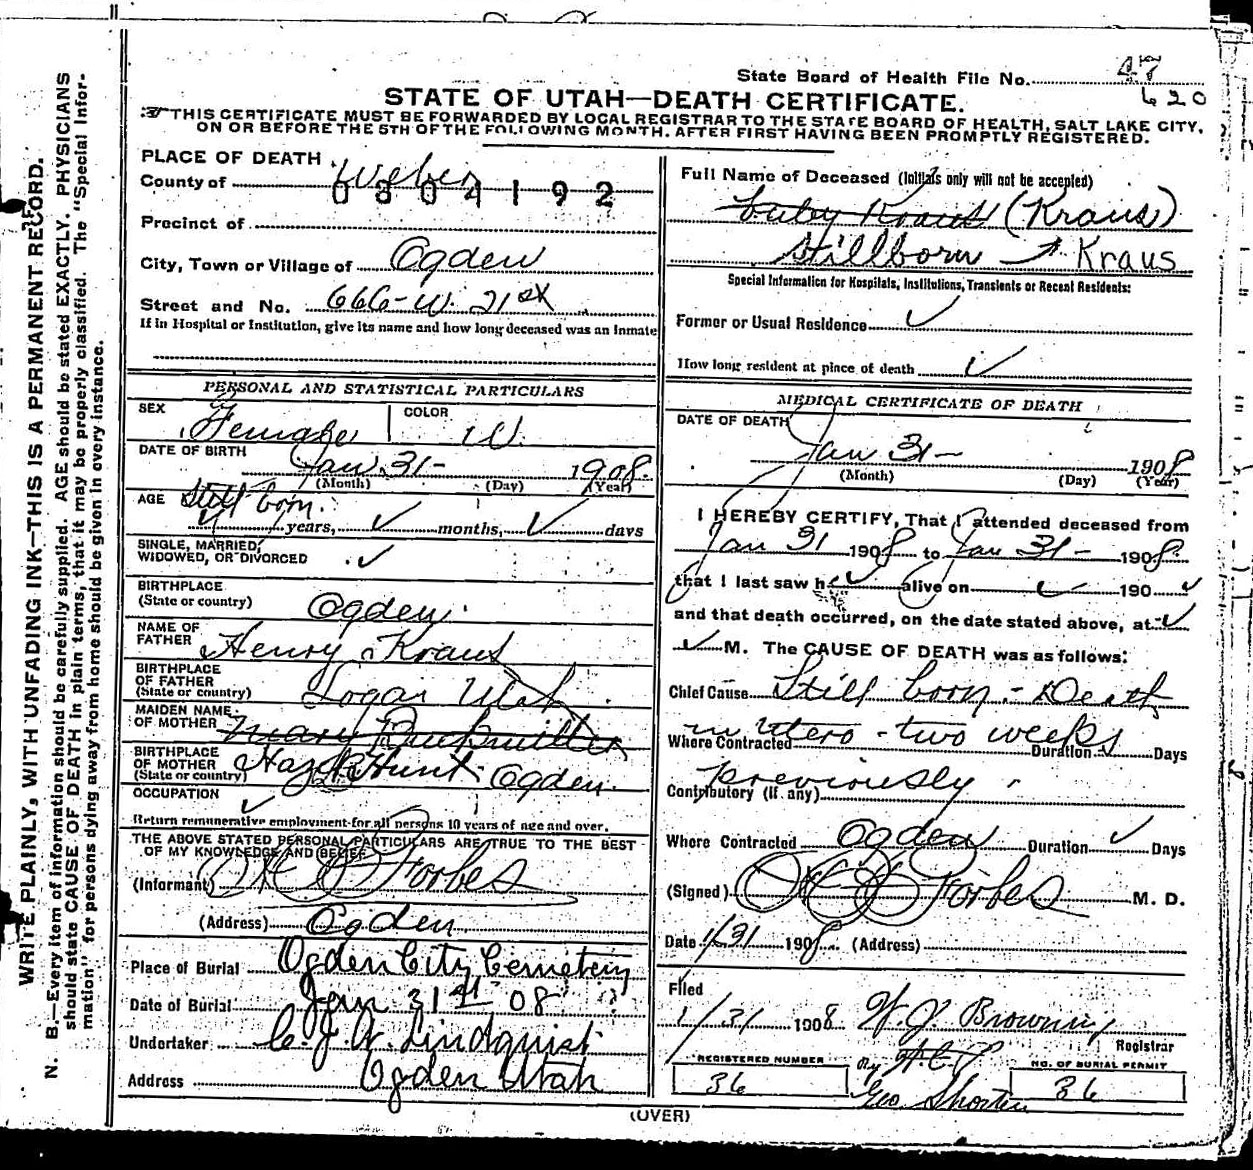 WRITE PLAINLY, WITH UNFADING INK—THIS IS A PERMANENT RECORD.
N. B.—Every item of information should be carefully supplied. AGE should be stated EXACTLY. PHYSICIANS
should state CAUSE OF DEATH in plain terms, that it may be properly classified. The "Special Infor-
mation" for persons dying away from home should be given in every instance.
State Board of Health File No. 47
620
STATE OF UTAH—DEATH CERTIFICATE.
THIS CERTIFICATE MUST BE FORWARDED BY LOCAL REGISTRAR TO THE STATE BOARD OF HEALTH, SALT LAKE CITY,
ON OR BEFORE THE 5TH OF THE FOLLOWING MONTH. AFTER FIRST HAVING BEEN PROMPTLY REGISTERED.
PLACE OF DEATH
County of Weber
0804192
Precinct of
City, Town or Village of Ogden
Street and No. 666-W. 21st
If in Hospital or Institution, give its name and how long deceased was an Inmate
PERSONAL AND STATISTICAL PARTICULARS
SEX Female COLOR W.
DATE OF BIRTH Jan 31- 1908.
(Month) (Day) (Year)
AGE Still born.
years, months, days
SINGLE, MARRIED,
WIDOWED, OR DIVORCED
BIRTHPLACE
(State or country) Ogden.
NAME OF
FATHER Henry Kraus
BIRTHPLACE
OF FATHER
(State or country) Logan Utah
MAIDEN NAME
OF MOTHER Mary
BIRTHPLACE
OF MOTHER
(State or country) Hazel Hunt Ogden.
OCCUPATION
Return remunerative employment for all persons 10 years of age and over.
THE ABOVE STATED PERSONAL PARTICULARS ARE TRUE TO THE BEST
OF MY KNOWLEDGE AND BELIEF
(Informant) Forbes
(Address) Ogden
Place of Burial Ogden City Cemetery
Date of Burial Jan 31st 08
Undertaker C. J. A. Lindquist
Address Ogden Utah
Full Name of Deceased (Initials only will not be accepted)
baby Kraus (Kraus)
Stillborn Kraus
Special Information for Hospitals, Institutions, Transients or Recent Residents:
Former or Usual Residence
How long resident at place of death
MEDICAL CERTIFICATE OF DEATH
DATE OF DEATH
Jan 31- 1908
(Month) (Day) (Year)
I HEREBY CERTIFY, That I attended deceased from
Jan 31 1908 to Jan 31- 1908.
that I last saw h alive on 190
and that death occurred, on the date stated above, at
M. The CAUSE OF DEATH was as follows:
Chief Cause Still born - Death
in utero - two weeks
Where Contracted Duration Days
previously
Contributory (if any)
Where Contracted Ogden Duration Days
(Signed) Forbes M. D.
Date 1/31 1908. (Address)
Filed
1/31 1908 W. J. Browning
Registrar
REGISTERED NUMBER
36
By
Geo Shorten
NO. OF BURIAL PERMIT
36
(OVER)